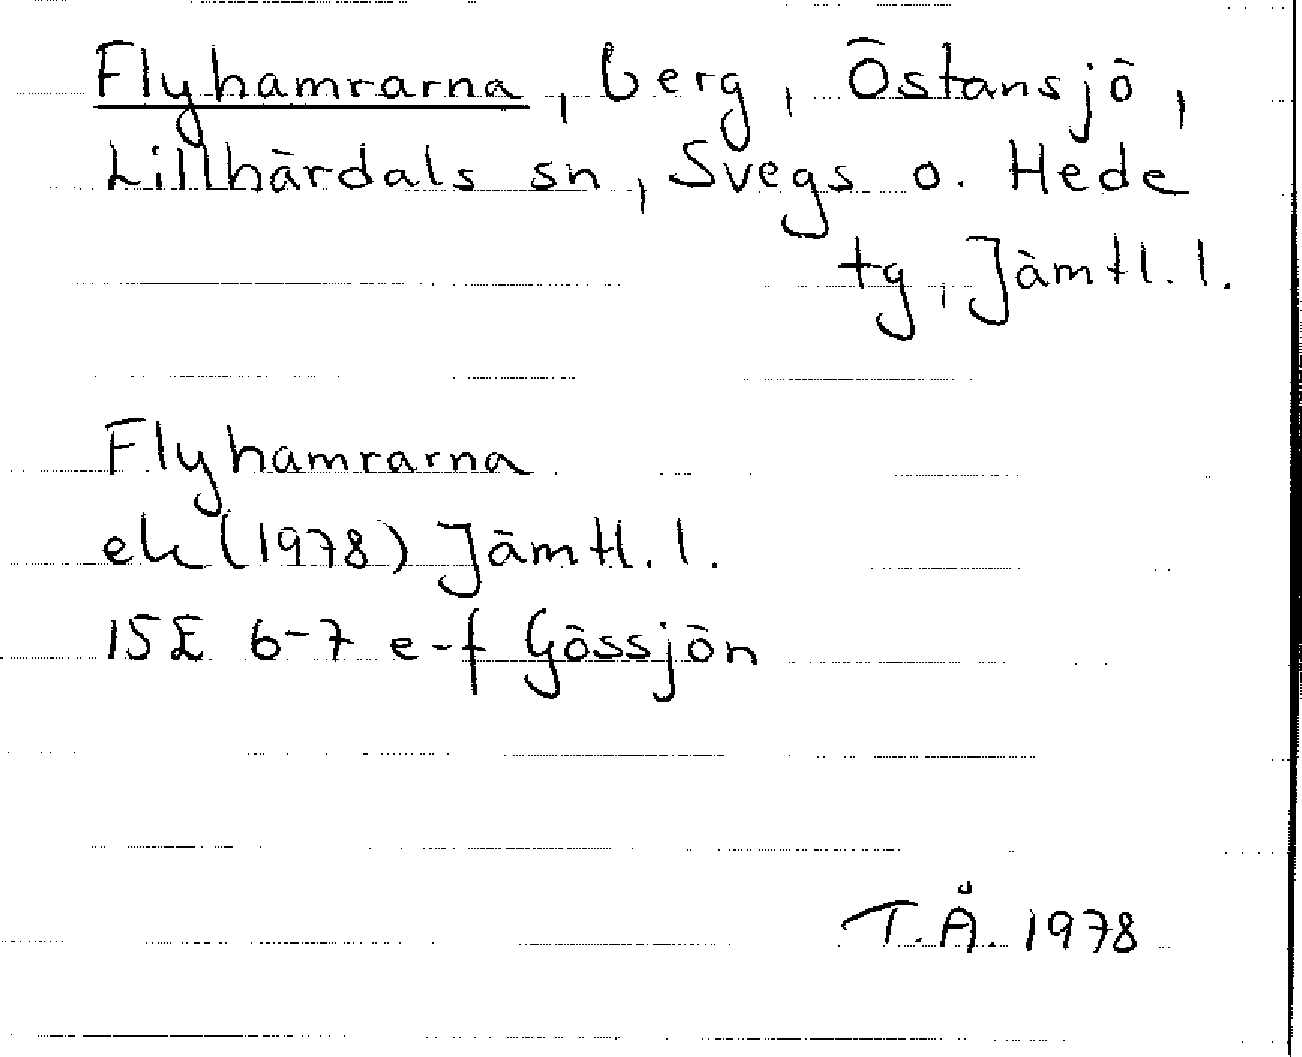 Flyhamrarna, berg, Östansjö,
Lillhärdals sn, Svegs o. Hede
tg, Jämtl. l.
Flyhamrarna
ek (1978) Jämtl. l.
15E 6-7 e-f Gössjön
T.Å. 1978